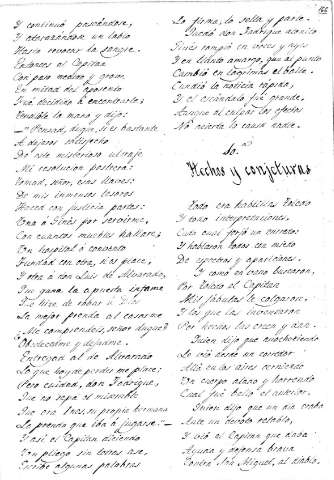 166
Y continuó paseándose,
Y atarazándose un labio
Hasta revocar la sangre.
Entonces el Capitan
Con paso medido y grave
En mitad del aposento
Fué decidido a encontrarle;
Tendióle la mano y dijo:
—"Pensad, duque, si es bastante
A dejaros satisfecho
De este misterioso ultraje
Mi resolucion postrera:
Tomad, señor, esas llaves;
De mis inmensos tesoros
Haced con justicia partes:
Una á Ginés por servirme,
Con cuantos muebles hallare;
Un hospital ó convento
Fundad con otra, si os place,
Y otra á don Luis de Alvarado,
Que gana la apuesta infame
Que hice de robar á Dios
La mejor prenda al casarme
¿Me comprendeis, señor duque?
Obedecedme y dejadme.
Entregad al de Alvarado
Lo que hoy perder me place;
Pero cuidad, don Fadrique,
Que no sepa el miserable
Que era Inés, su propia hermana
La prenda que iba á jugarse."—
Y así el Capitan diciendo
Un pliego sin leerse ase,
Escribe algunas palabras
Lo firma, lo sella y parte.
Quedó don Fadrique atónito
Ginés rompió en voces y ayes
Y en llanto amargo, que al punto
Cambió en lágrimas el baile.
Cundió la noticia rápida,
Y el escándalo fué grande,
Aunque al culpar los efectos
No acierta la causa nadie.
10.
Hechos y conjeturas
Todo era hablillas Toledo
Y todo interpretaciones.
Cada cual forjó un cuento;
Y hablaron todos con miedo
De espectros y apariciones.
Y como en vano buscaron,
Por Toledo el Capitan
Mil fábulas le colgaron,
Y los que las inventaron
Por hechos las creen y dan.
Quien dijo que anocheciendo
Le vió desde un corredor
Allá en los aires cerniendo
Un cuerpo alado y horrendo
Cual fué bello el anterior.
Quien dijo que un dia oraba
Ante un devoto retablo,
Y vió al Capitan que daba
Ayuda y defensa brava
Contra San Miguel, al diablo.